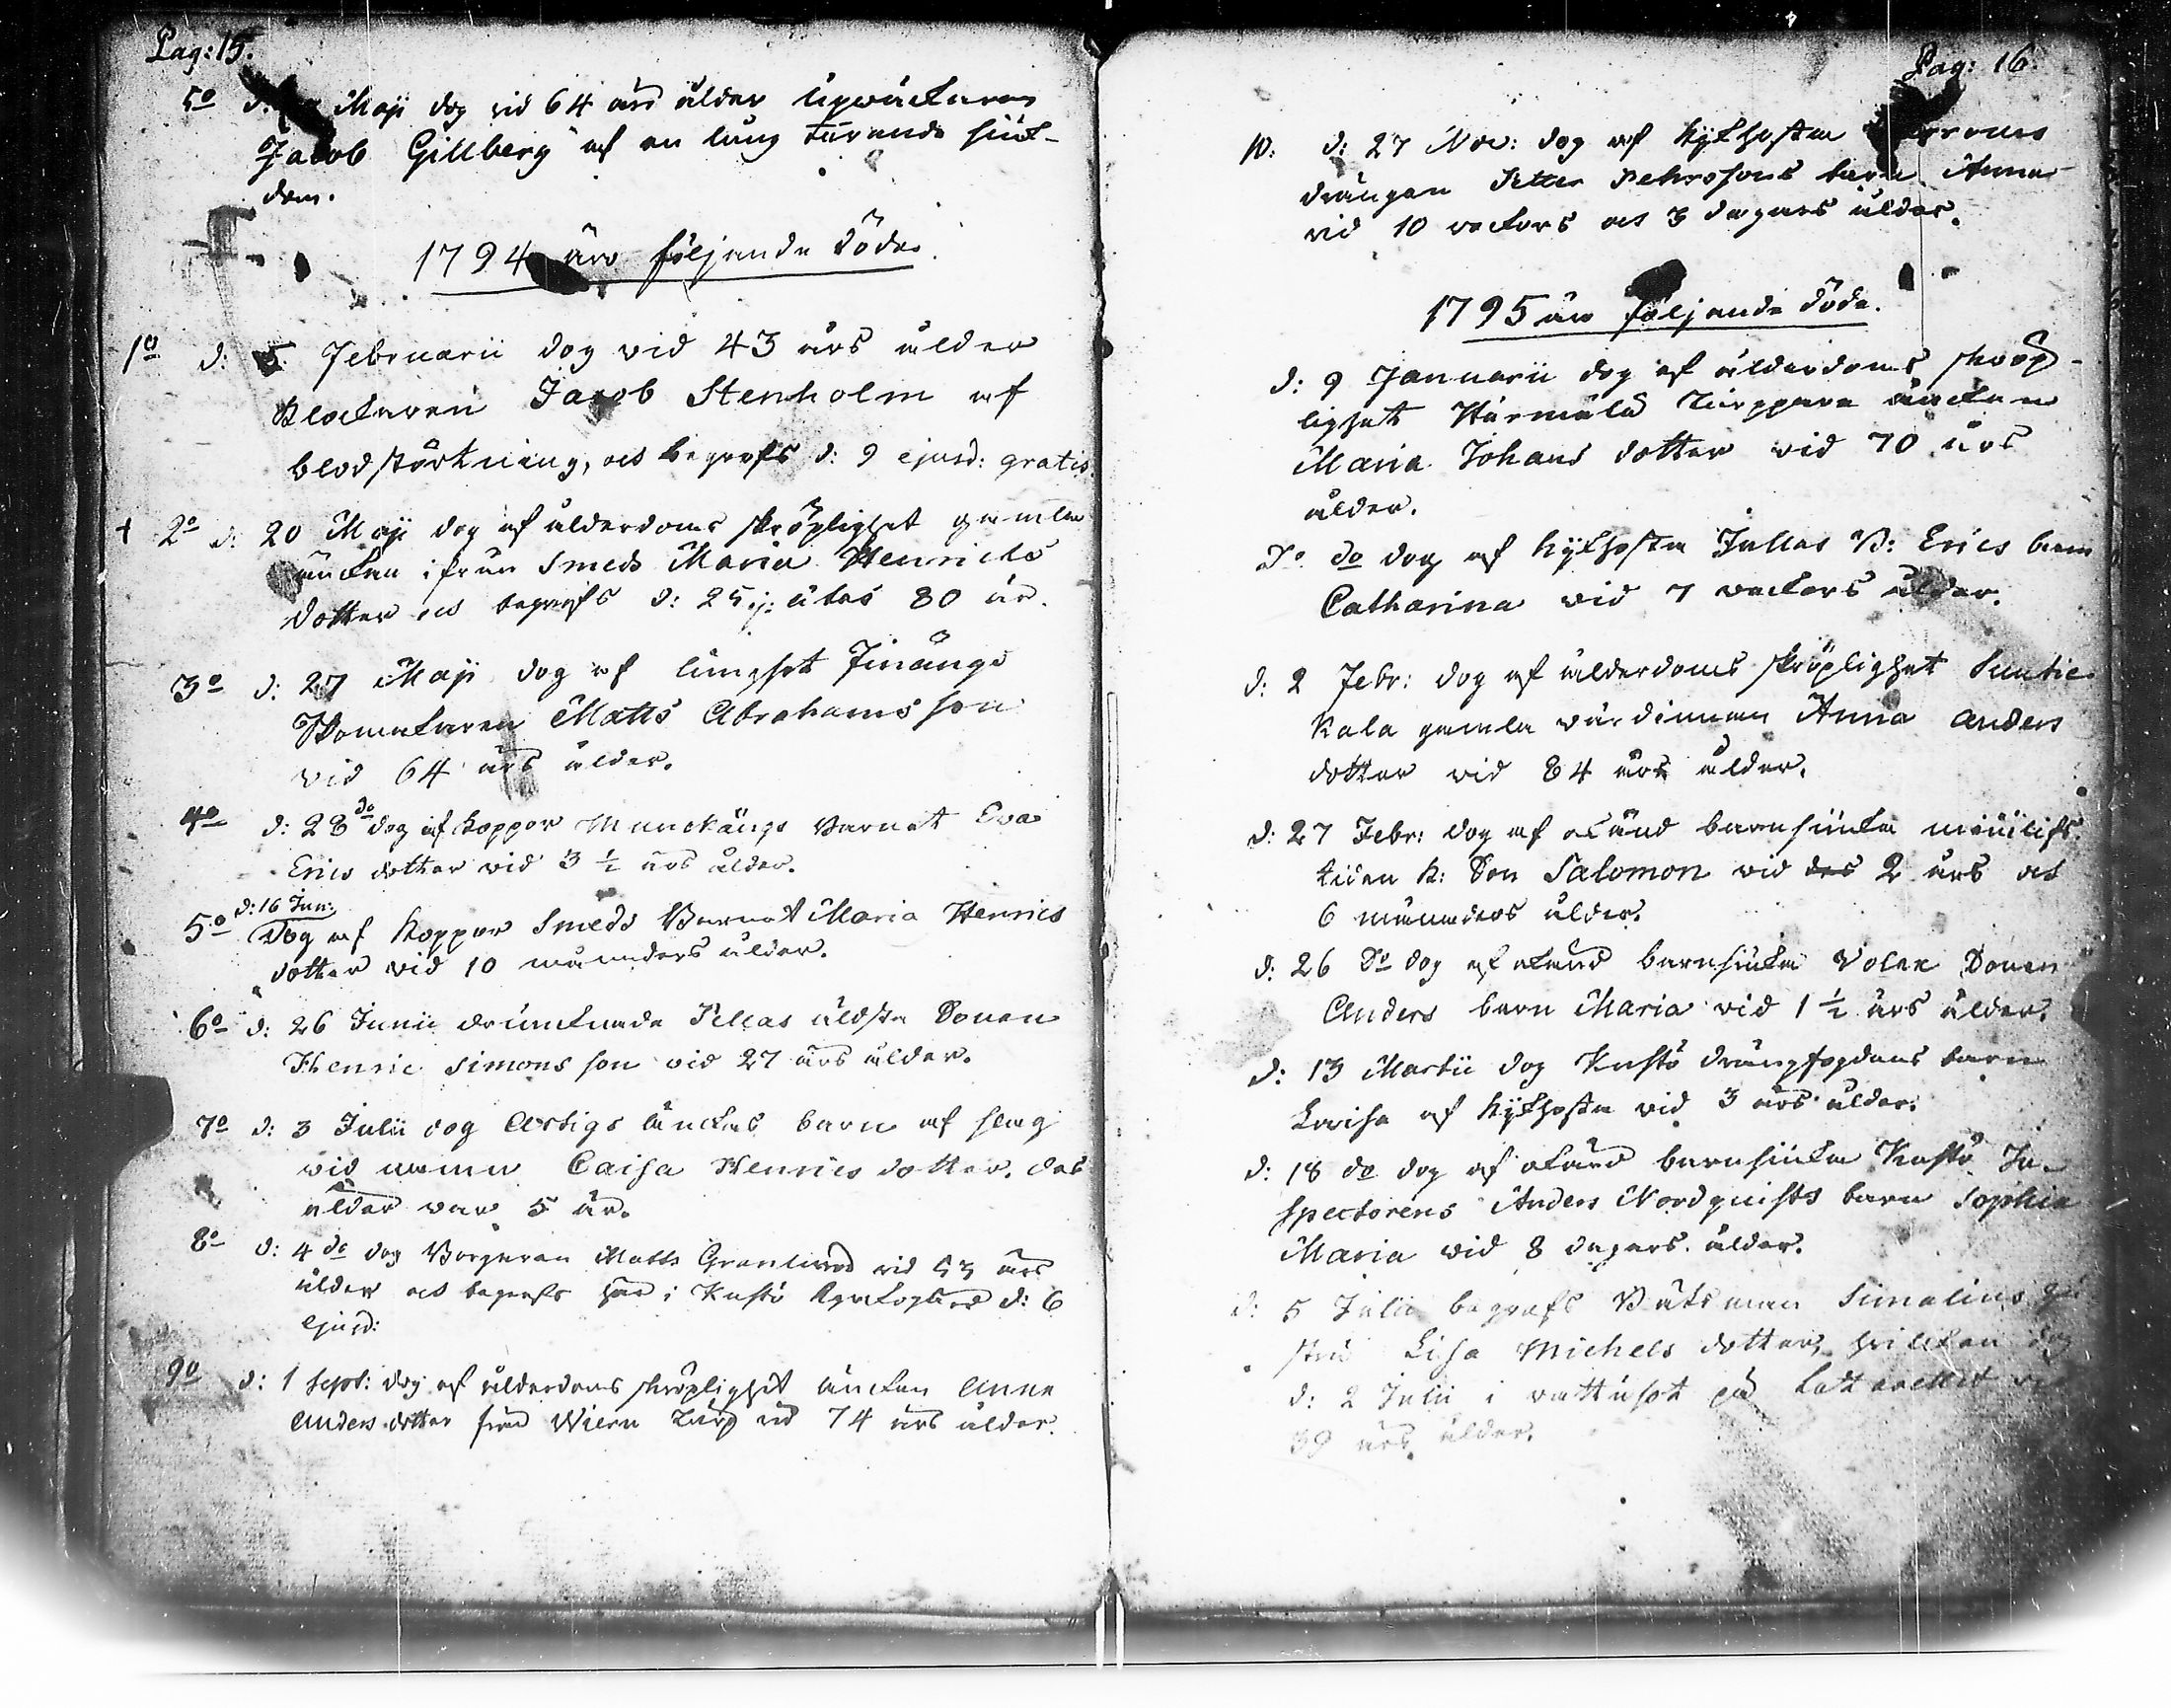 Pag: 15.
5o d: Maji dog vid 64 års ålder Upwacktaren
Jacob Gillberg af en lång tärande siuk-
dom.
1794 äro följande döde.
1o d: 5 Februarii dog vid 43 års ålder
Klockaren Jacob Stenholm af
blodstörtning, och begrofs d: 9 ejusd: gratis.
+ 2o d: 20 Maji dog af ålderdoms skröplighet gamla
änckan ifrån Smeds Maria Henrics
dotter och begrofs d: 25 j: ätas 80 år.
3o d: 27 Maji dog af lungsot Finängs
Skomakaren Matts Abrahamsson
vid 64 års ålder.
4o d: 28 do dog af koppor Munckängs Barnet Eva
Erics dotter vid 3 1/2 års ålder.
d: 16 Jun:
5o Dog af Koppor Smeds Barnet Maria Henrics
dotter vid 10 månaders ålder.
6o d: 26 Junii drunknade Pellas äldsta Sonen
Henric Simonsson vid 27 års ålder.
7o d: 3 Julii dog Artigs änckas barn af slag
vid namn Caisa Henrics dotter, dess
ålder war 5 år.
8o d: 4 do dog Borgaren Matts Granlund vid 53 års
ålder och begrofs här i Kustö kyrkogård d: 6
ejusd:
9o d: 1 Sept: dog af ålderdoms skröplighet änckan Anna
Anders dotter från Wiern Torp vid 74 års ålder.
Pag: 16.
10: d: 27 Nov: dog af kikhosta
drängen Petter Pehrssons barn Anna
vid 10 veckors och 3 dagars ålder.
1795 äro följande döde.
d: 9 Januarii dog af ålderdoms skröp-
lighet änckan
Maria Johans dotter vid 70 års
ålder.
do dog af kikhosta Jullas B: Erics barn
Catharina vid 7 veckors ålder.
d: 2 Febr: dog af ålderdoms skröplighet
Kala gamla värdinnan Anna Anders
dotter vid 84 års ålder.
d: 27 Febr: dog af okänd barnsiuka
Son Salomon vid des 2 års och
6 månaders ålder.
d: 26 do dog af okänd barnsiuka Sonen
Anders barn Maria vid 1 1/2 års ålder.
d: 13 Martii dog Kustö drängfogdens barn
Lovisa af kikhosta vid 3 års ålder.
d: 18 do dog af okänd barnsiuka Kustö In-
spectorens Anders Nordquists barn Sophia
Maria vid 8 dagars ålder.
d: 5 Julii begrofs Båtsman Simelins hu-
stru Lisa Michels dotter, hvilken dog
d: 2 Julii i vattusot på Lattarettet
39 års ålder.